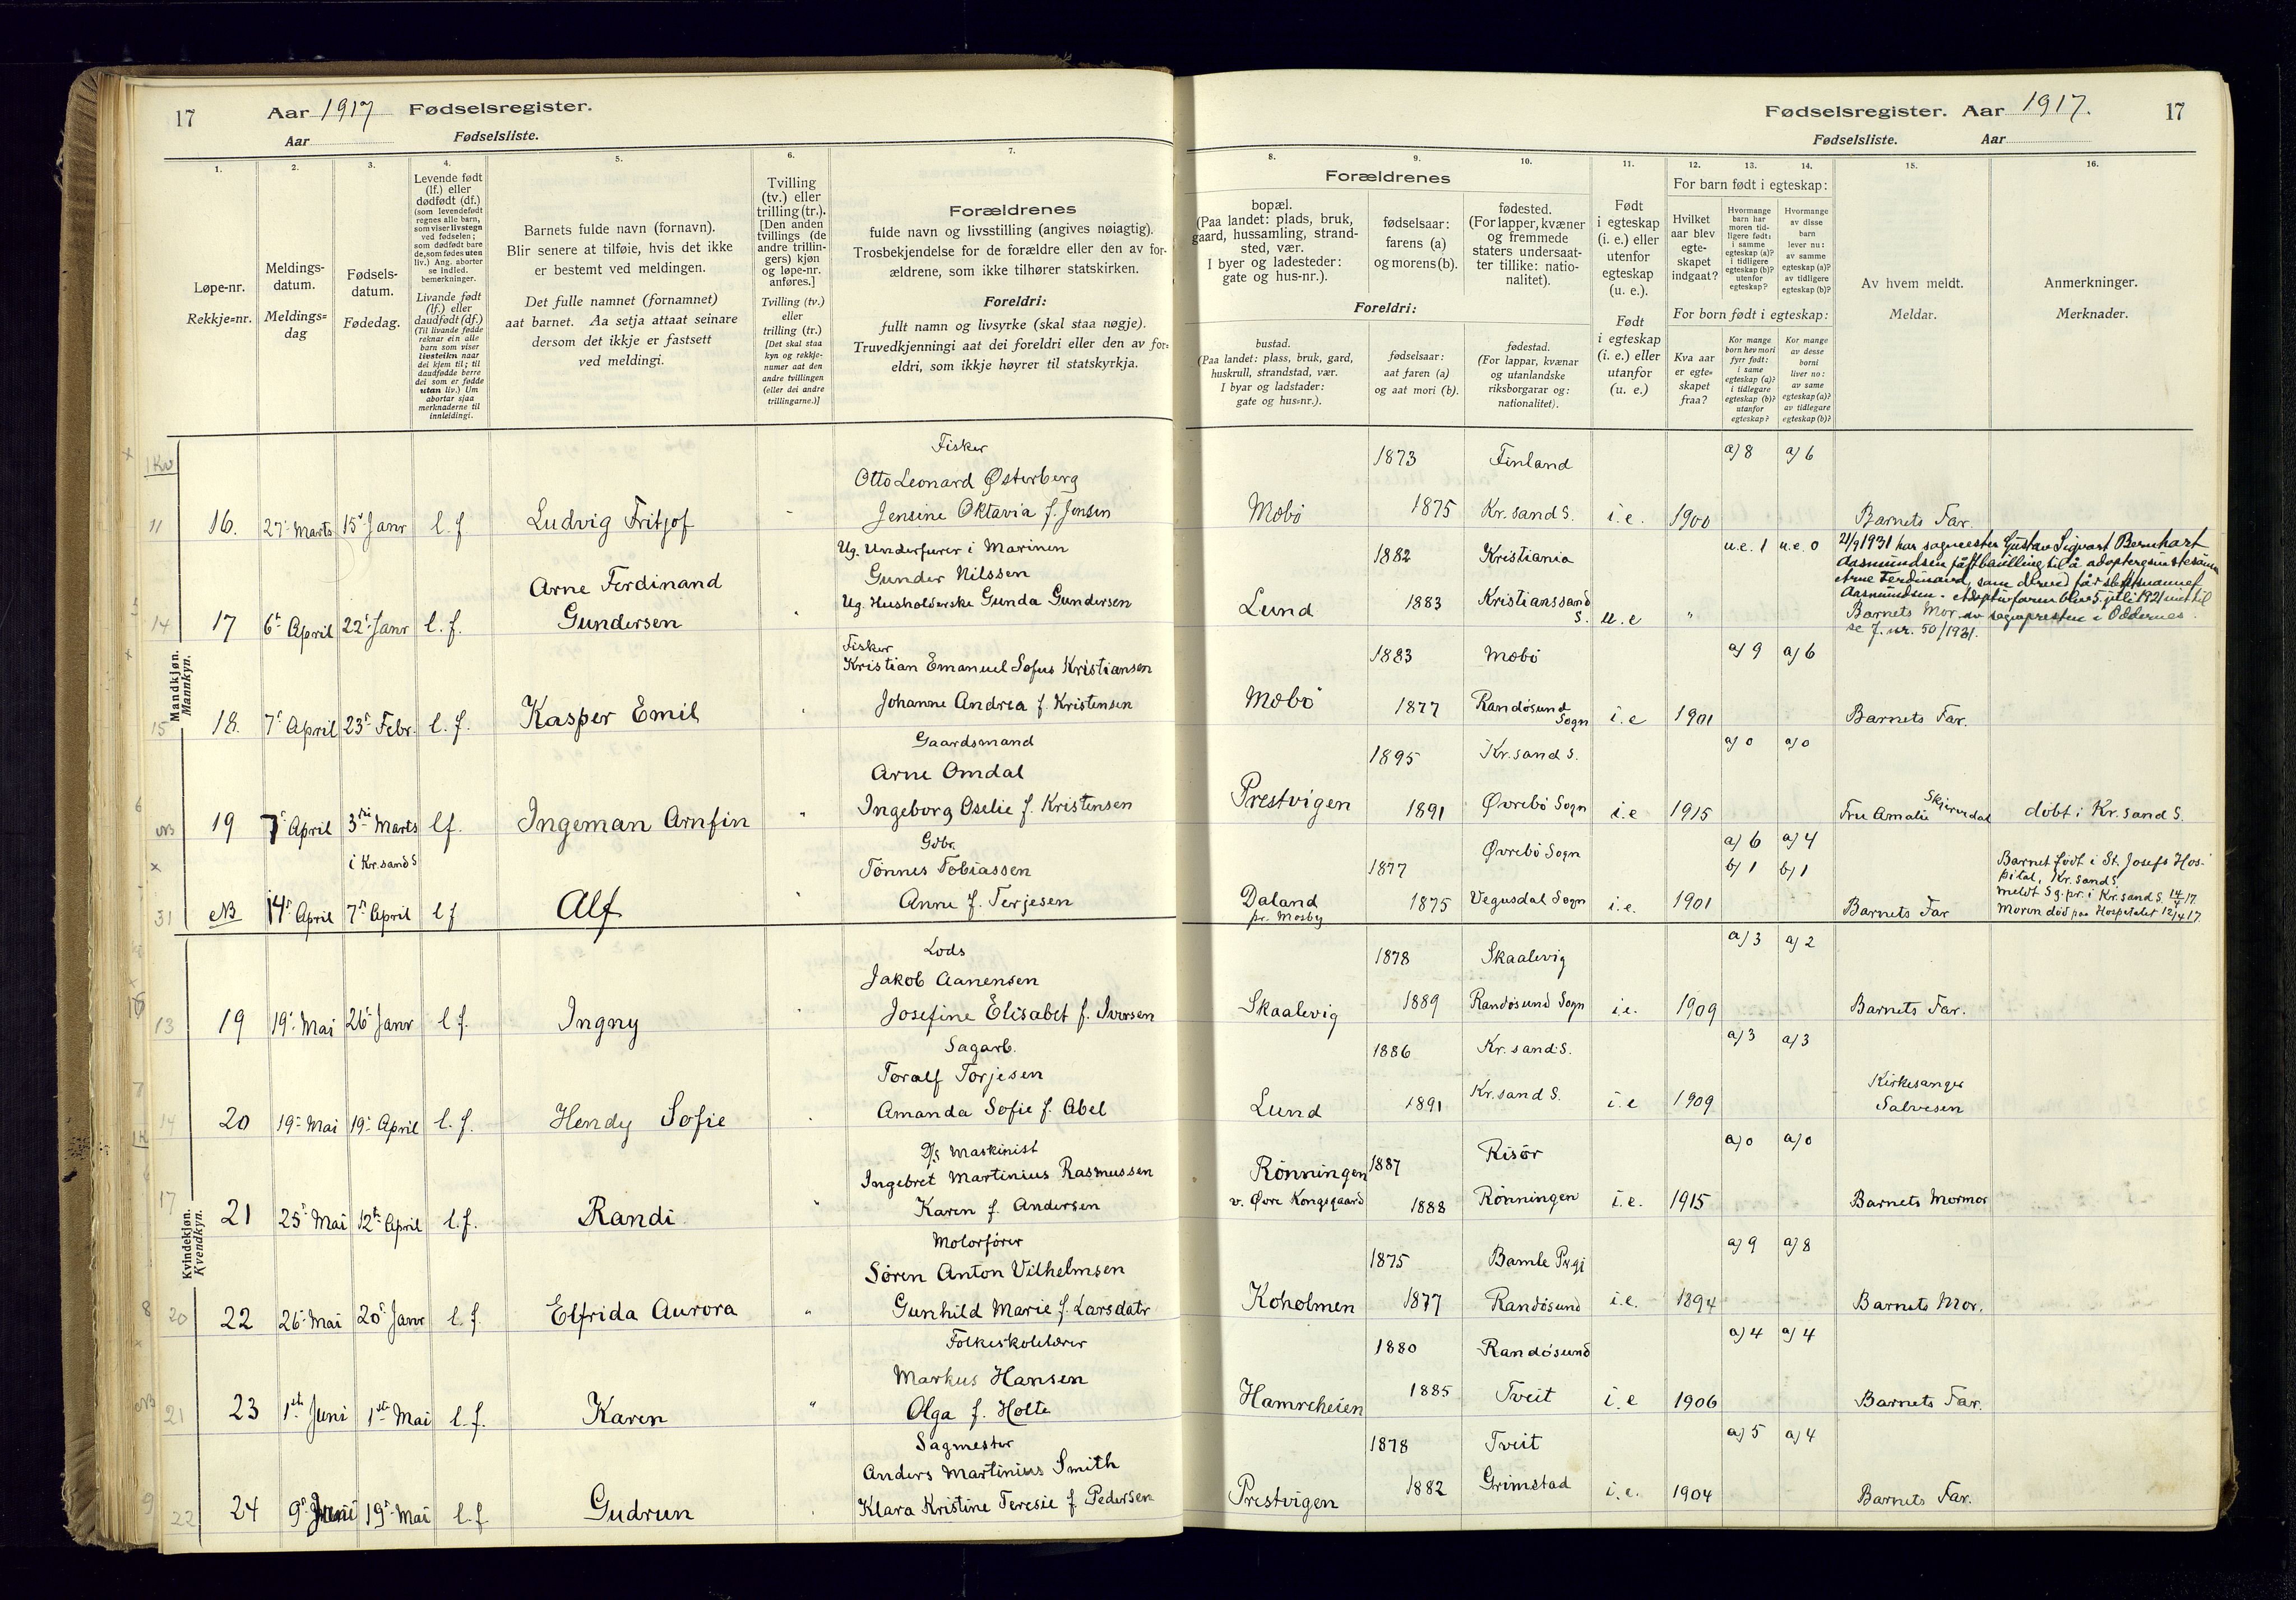 17 Aar 1917 Fødselsregister.
Aar Fødselsliste.
1. 2. 3. 4. 5. 6. 7.
Løpe-nr.
Rekkje=nr.
Meldings-
datum.
Meldings=
dag
Fødsels-
datum.
Fødedag.
Levende født
(lf.) eller
dødfødt (df.)
(som levendefødt
regnes alle barn,
som viser livstegn
ved fødselen;
som dødfødt bare
de, som fødes uten
liv.) Ang. aborter
se indled.
bemerkninger.
Livande født
(lf.) eller
daudfødt (df.)
(Til livande fødde
reknar ein alle
barn som viser
livsteikn naar
dei kjem til; til
daudfødde berre
dei som er fødde
utan liv.) Um
abortar sjaa
merknaderne til
innleidingi.
Barnets fulde navn (fornavn).
Blir senere at tilføie, hvis det ikke
er bestemt ved meldingen.
Det fulle namnet (fornamnet)
aat barnet. Aa setja attaat seinare
dersom det ikkje er fastsett
ved meldingi.
Tvilling
(tv.) eller
trilling (tr.).
[Den anden
tvillings (de
andre trillin-
gers) kjøn
og løpe-nr.
anføres.]
Tvilling (tv.)
eller
trilling (tr.)
[Det skal staa
kyn og rekkje-
numer aat den
andre tvillingen
(eller dei andre
trillingarne.)]
Forældrenes
fulde navn og livsstilling (angives nøiagtig).
Trosbekjendelse for de forældre eller den av for-
ældrene, som ikke tilhører statskirken.
Foreldri:
fullt namn og livsyrke (skal staa nøgje).
Truvedkjenningi aat dei foreldri eller den av for=
eldri, som ikkje høyrer til statskyrkja.
Mandkjøn.
Mannkyn.
Fisker
Otto Leonard Østerberg
16. 27' Marts 15' Janr l. f Ludvig Fritjof Jensine Oktavia f. Jensen
Ug. Underfurer i Marinen
Arne Ferdinand Gunder Nilssen
17 6' April 22' Janr l. f. Gundersen Ug. Husholderske Gunda Gundersen
Fisker
Kristian Emanuel Sofus Kristiansen
18. 7' April 23' Febr. l. f. Kasper Emil Johanne Andrea f. Kristensen
Gaardsmand
Arne Omdal
19 7' April 3die Marts lf. Ingeman Arnfin Ingeborg Oselie f. Kristensen
i Kr.sand S
Gdbr.
Tønnes Tobiassen
NB 14' April 7' April l f Alf Anne f. Terjesen
Kvindekjøn.
Kvendkyn.
Lods
Jakob Aanensen
19 19' Mai 26' Janr l. f. Ingny Josefine Elisabet f. Iversen
Sagarb.
Toralf Torjesen
20 19' Mai 19' April l. f. Hendy Sofie Amanda Sofie f. Abel
D/s Maskinist
Ingebret Martinius Rasmussen
21 25' Mai 12te April l. f. Randi Karen f. Andersen
Motorfører
Søren Anton Vilhelmsen
22 26' Mai 20' Janr l. f. Elfrida Aurora Gunhild Marie f. Larsdatr
Folkeskolelærer
Markus Hansen
23 1ste Juni 1ste Mai l. f. Karen Olga f. Holte
Sagmester
Anders Martinius Smith
24 9' Juni 19' Mai l. f Gudrun Klara Kristine Teresie f. Pedersen
Fødselsregister. Aar 1917. 17
Fødselsliste. Aar
8. 9. 10. 11. 12. 13. 14. 15. 16.
Forældrenes
bopæl.
(Paa landet: plads, bruk,
gaard, hussamling, strand-
sted, vær.
I byer og ladesteder:
gate og hus-nr.).
fødselsaar:
farens (a)
og morens (b).
fødested.
(For lapper, kvæner
og fremmede
staters undersaat-
ter tillike: natio-
nalitet).
Foreldri:
bustad.
(Paa landet: plass, bruk, gard,
huskrull, strandstad, vær.
I byar og ladstader:
gate og hus=nr.).
fødselsaar:
aat faren (a)
og aat mori (b).
fødestad.
(For lappar, kvænar
og utanlandske
riksborgarar og:
nationalitet).
Født
i egteskap
(i. e.) eller
utenfor
egteskap
(u. e.).
Født
i egteskap
(i. e.) eller
utanfor
(u. e.)
For barn født i egteskap:
Hvilket
aar blev
egte-
skapet
indgaat?
Hvormange
barn har
moren tid-
ligere født:
i samme
egteskap (a)?
i tidligere
egteskap (b)?
utenfor
egteskap?
Hvormange
av disse
barn
lever nu:
av samme
egteskap (a)?
av tidligere
egteskap (b)?
For born født i egteskap:
Kva aar
er egte=
skapet
fraa?
Kor mange
born hev mori
fyrr født:
i same
egteskap (a)?
i tidlegare
egteskap (b)?
utanfor
egteskap?
Kor mange
av desse
borni
liver no:
av same
egteskap (a)?
av tidlegare
egteskap (b)?
Av hvem meldt.
Meldar.
Anmerkninger.
Merknader.
1873 Finland a) 8 a) 6
Mæbø 1875 Kr.sand S. i. e. 1900 Barnets Far.
1882 Kristiania u.e. 1 u.e. 0
21/9 1931 har sagmester Gustav Sigvart Bernhart
Aasmundsen fått bevilling til å adoptere sin stesønn
Arne Ferdinand, som derved får slektsnavnet
Aasmundsen.
Lund 1883 Kristianssand S. u. e " Barnets Mor. av sognepresten i Oddernes.
se J. nr. 50/1931.
1883 Mæbø a) 9 a) 6
Mæbø 1877 Randøsund Sogn i. e 1901 Barnets Far.
1895 Kr.sand S. a) 0 a) 0
Prestvigen 1891 Øvrebø Sogn i. e 1915 Fru Amalie Skjerverdal døbt i Kr.sand S.
1877 Øvrebø Sogn a) 6 a) 4
b) 1 b) 1
Barnet født i St. Josefs Hos-
pital, Kr.sand S.
meldt Sg.pr. i Kr.sand S. 14/4 17.
Moren død paa Hospitalet 12/4 17.
Daland 1875 Vegusdal Sogn i. e. 1901 Barnets Far
pr. Mosby
1878 Skaalevig a) 3 a) 2
Skaalevig 1889 Randøsund Sogn i. e. 1909 Barnets Far.
1886 Kr.sand S. a) 3 a) 3
Lund 1891 Kr.sand S. i. e 1909 Kirkesanger
Salvesen
Rønningen 1887 Risör a) 0 a) 0
v. Øvre Kongsgaard 1888 Rønningen i. e. 1915 Barnets Mormor
1875 Bamle Prgj a) 9 a) 8
Koholmen 1877 Randøsund i. e. 1894 Barnets Mor.
1880 Randøsund a) 4 a) 4
Hamreheien 1885 Tveit i. e 1906 Barnets Far.
1878 Tveit a) 5 a) 4
Prestvigen 1882 Grimstad i. e. 1904 Barnets Far.